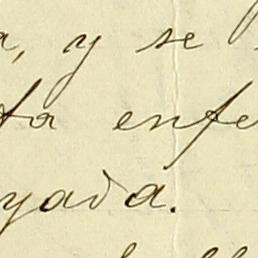 a, y se
ta enfe
yada.